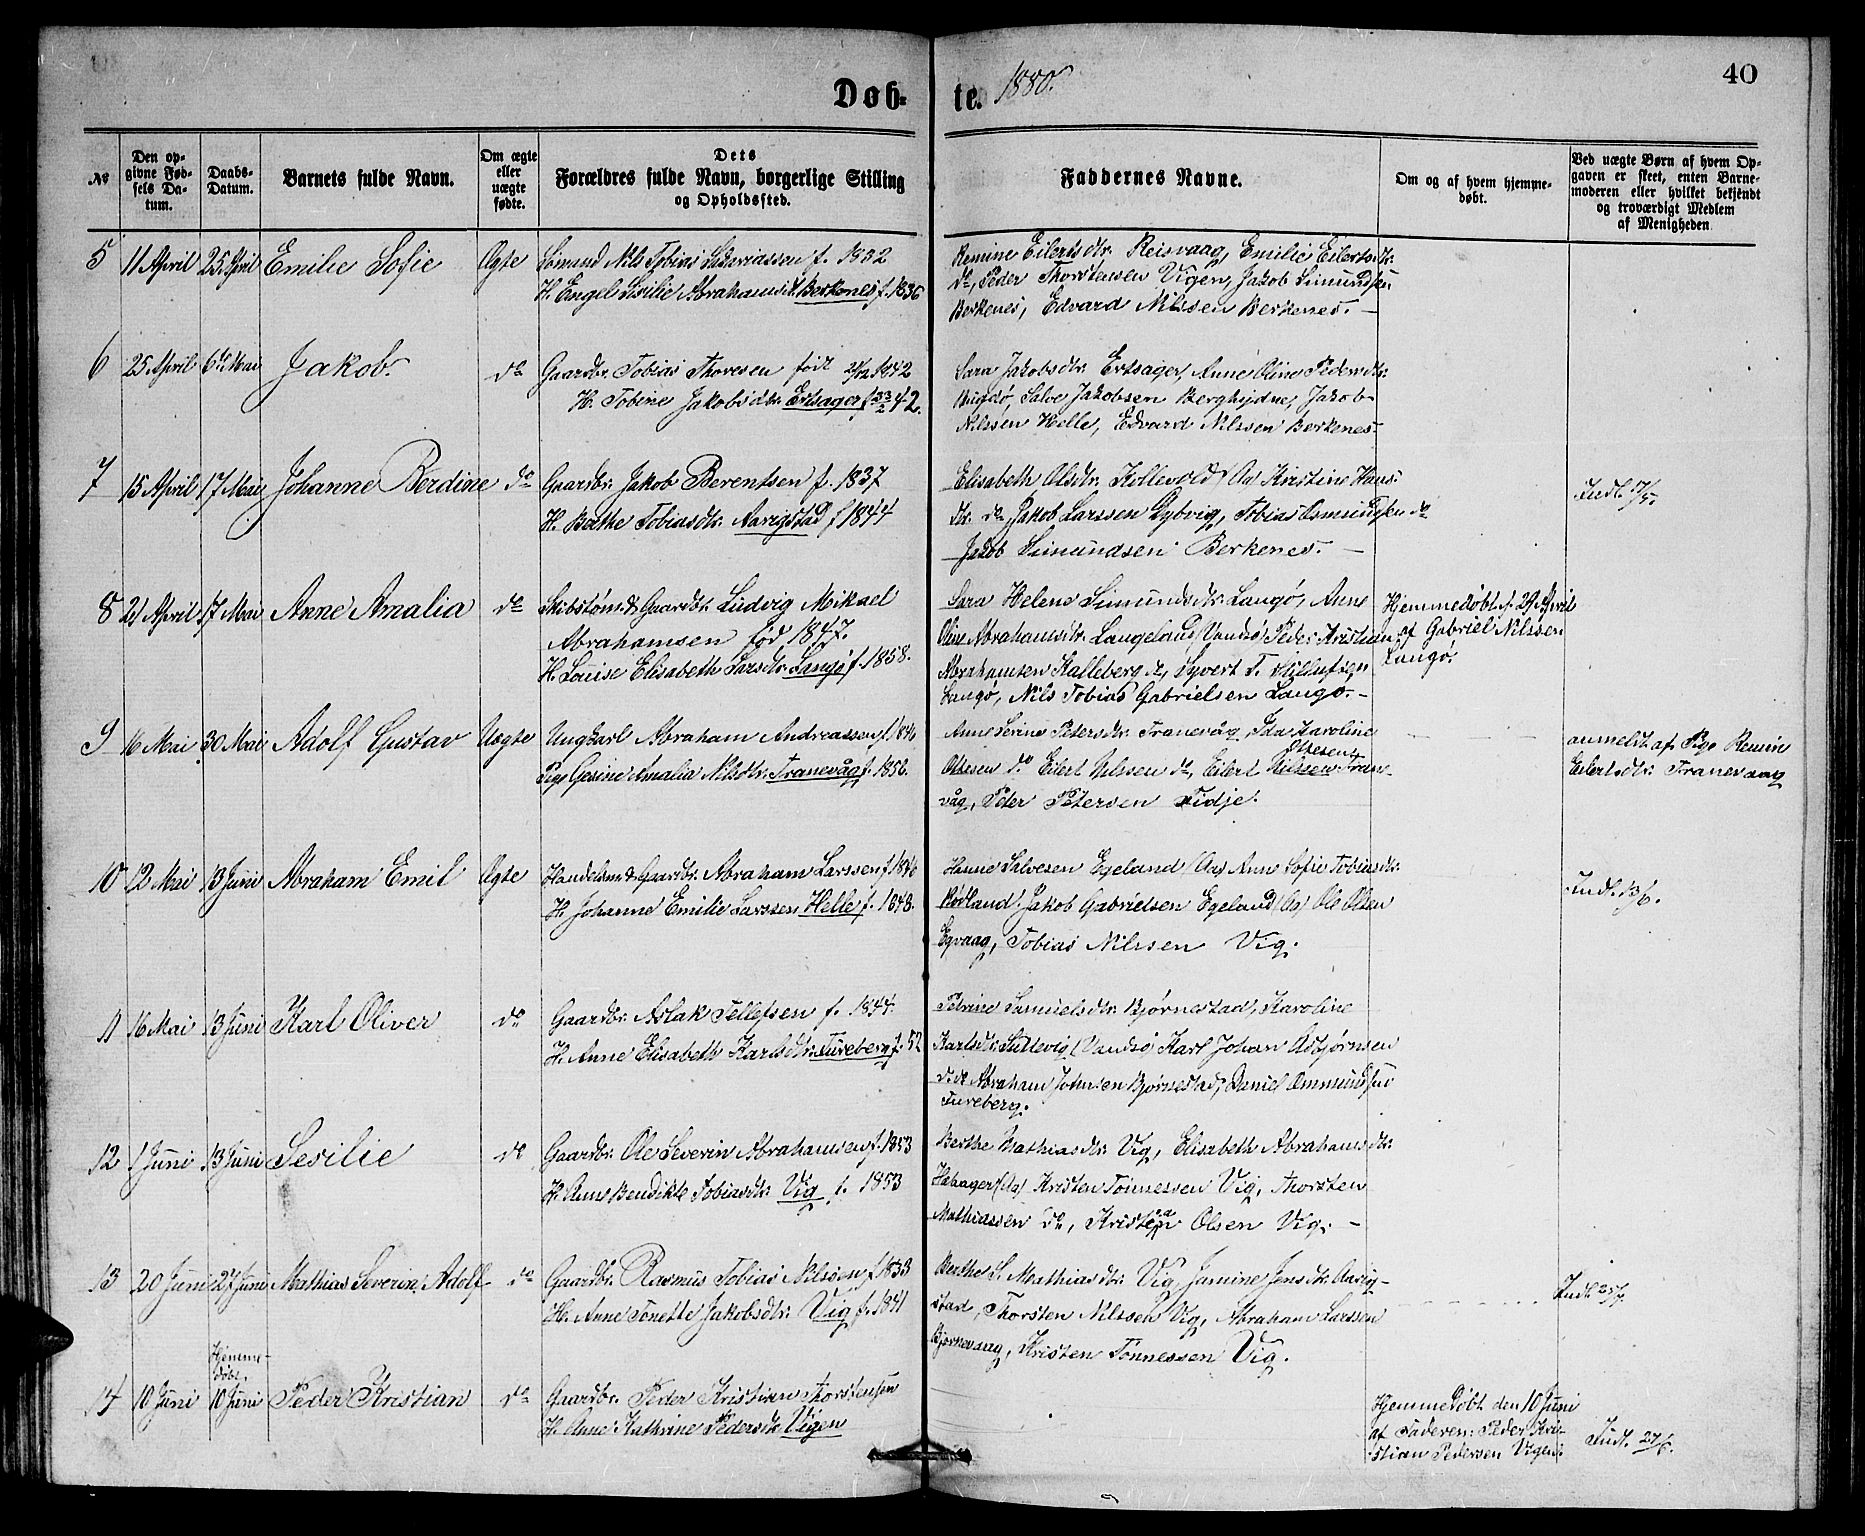 Døb-
te.
1880.
40
№
Den op-
givne Føds-
sels Da-
tum.
Daabs-
Datum.
Barnets fulde Navn.
Om ægte
eller
uægte
fødte.
Dets
Forældres fulde Navn, borgerlige Stilling
og Opholdssted.
Faddernes Navne.
Om og af hvem hjemme-
døbt.
Ved uægte Børn af hvem Op-
gaven er skeet, enten Barne-
moderen eller hvilket bekjendt
og troværdigt Medlem
af Menigheden
5 11 April 25 April Emilie Sofie Ægte Sømand Nils Tobias Sakariassen f. 1832
H. Engel Sisilie Abrahamsd. Berkenes f. 1836
Remine Eilertsdtr. Reisvaag, Emilie Eilertsdtr.
do, Peder Thorstensen Vigen, Jakob Simundsen
Berkenes, Edvard Nilssen Berkenes. —
6 25 April 6te Mai Jakob. do Gaardbr. Tobias Thoresen født 1842
H. Tobine Jakobsdtr. Ertsager f. 42.
Sara Jakobsdtr. Ertsager, Anne Oline Pedersdtr.
Salve Jakobsen Jakob
Nilssen Helle, Edvard Nilssen Berkenes-
7 15 April 17 Mai Johanne Berdine do Gaardbr. Jakob Berentsen f. 1837
H. Berthe Tobiasdtr. Aarigstad f 1844
Elisabeth Olsdtr. Kollevold (Aa) Kristine Hans-
dtr. do, Jakob Larssen Dybvig, Tobias Asmundsen do
Jakob Simundsen Berkenes. —
Indl. 17/5.
8 21 April 17 Mai Anne Amalia do Skibstøm. & Gaardbr. Ludvig Mikael
Abrahamsen fød 1847.
H. Louise Elisabeth Larsdtr. Langø f. 1858.
Sara Helene Simundsdtr. Langø, Anne
Oline Abrahamsdtr. Langeland (Vandsø) Peder Kristian
Abrahamsen Kalleberg do, Syvert T.
Langø, Nils Tobias Gabrielsen Langø. -
Hjemmedøbt d. 29 April
af Gabriel Nilssen
Langø.
9 16 Mai 30 Mai Adolf Gustav Uægte Ungkarl Abraham Andreassen f. 1846
Pige Gesine Amalia Nilsdtr. Tranevåg f. 1856.
Anne Serine Petersdtr. Tranevåg, Ida Karoline
Ellesen
Ottesen do Eilert Nilssen do, Eilert Nilssen Trane-
våg, Peder Petersen Fidje.
anmeldt af Pige Remine
Eilertsdtr. Tranevaag
10 12 Mai 13 Juni Abraham Emil Ægte Handelsm. & Gaardbr. Abraham Larssen f. 1846
H. Johanne Emilie Larssen Helle f. 1848.
Hanne Salvesen Egeland (Aa) Anne Sofie Tobiasdtr.
Rødland. Jakob Gabrielsen Egeland (Aa) Ole Olsen
Egvaag, Tobias Nilssen Vig.
Indl. 13/6.
11 16 Mai 13 Juni Karl Oliver do Gaardbr. Aslak Tellefsen f. 1844.
H. Anne Elisabeth Karlsdtr. Tureberg f. 52
Petrine Samuelsdtr. Bjørnestad, Karoline
Karlsdtr. Sellevig (Vandsø) Karl Johan Asbjørnsen
do. do Abraham Johnsen Bjørnestad, Daniel Ommundsen
Tureberg.
12 1 Juni 13 Juni Sesilie do Gaardbr. Ole Severin Abrahamsen f. 1853
H. Anne Bendikte Tobiasdtr. Vig f. 1853
Berthe Mathiasdtr. Vig, Elisabeth Abrahamsdtr.
Høhager (Aa) Kristen Tønnessen Vig, Thorsten
Mathiassen do, Kristen Olsen Vig. —
13 20 Juni 27 Juni Mathias Severin Adolf do Gaardbr. Rasmus Tobias Nilssen f. 1833
H. Anne Tonette Jakobsdtr. Vig f. 1841
Berthe S. Mathiasdtr. Vig, Jamine Jensdtr. Aarig-
stad, Thorsten Nilssen Vig, Abraham Larssen
Bjørnevaag, Kristen Tønnessen Vig.
Indl. 25/7.
14 10 Juni Hjemme-
døbt,
10 Juni Peder Kristian do Gaardbr. Peder Kristian Thorstensen
H. Anne Kathrine Pedersdtr. Vigen
Hjemmedøbt den 10 Juni
af Faderen: Peder Kri-
stian Pedersen Vigen.
Indl. 27/6.